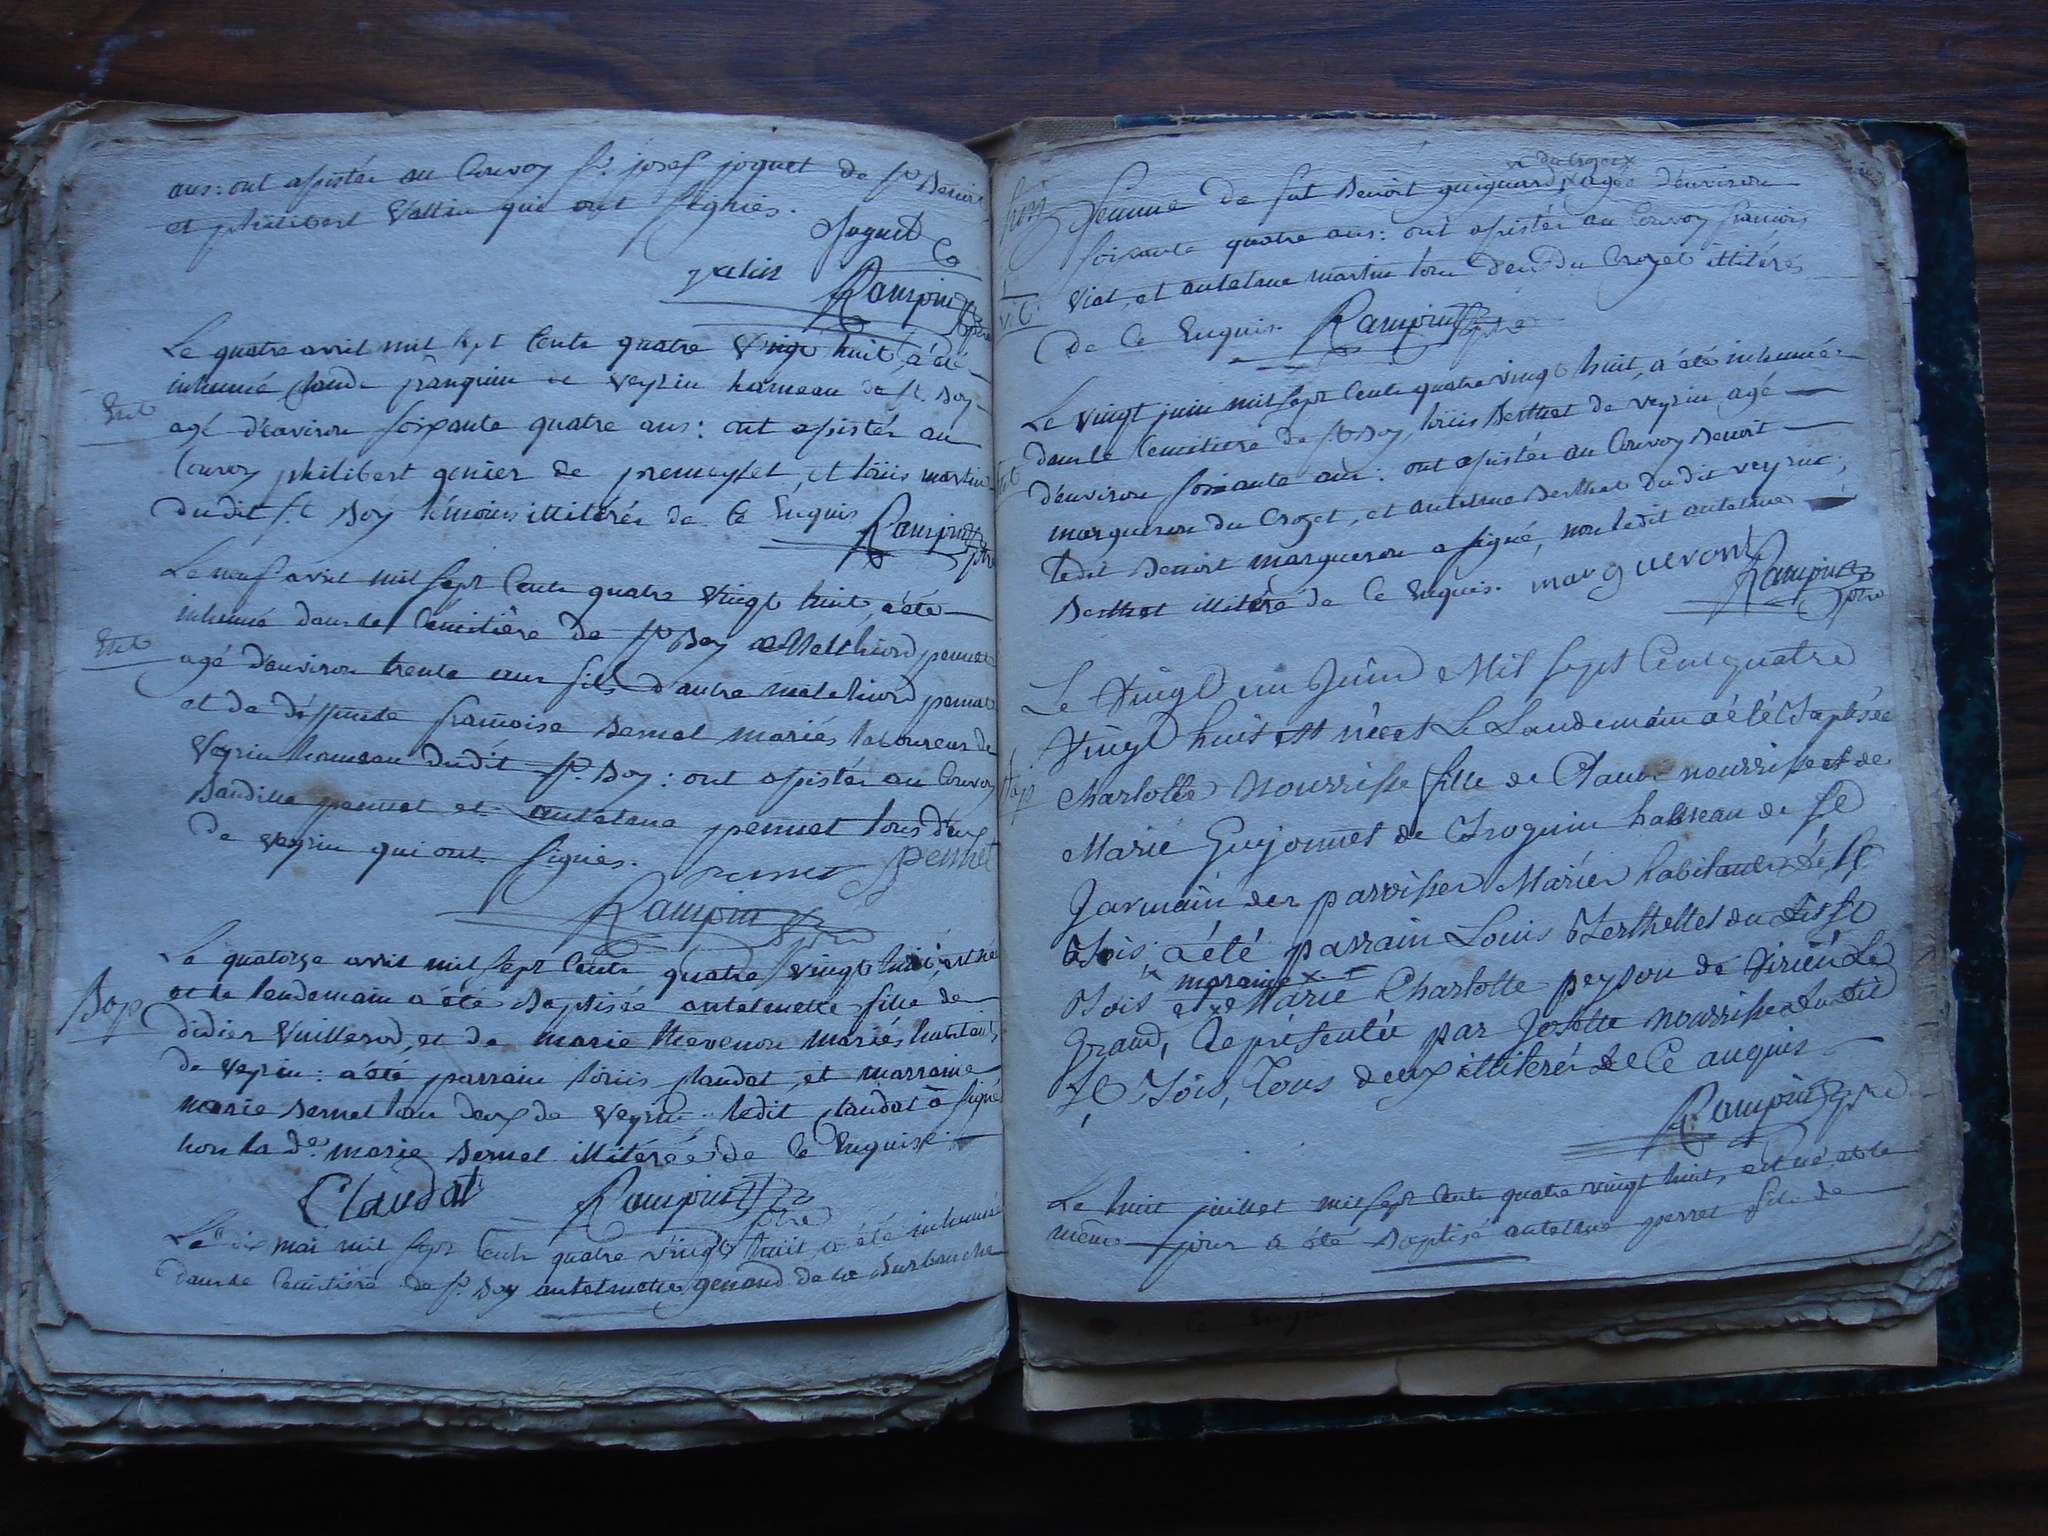 ans: ont assistés au Convoy Sr. josef joguet de St. Benoit
et philibert Vallin qui ont signiés.
Joguet
valin Rampin ptre
Le quatre avril mil sept Cents quatre Vingt huit, a été
inhumé Claude franquin de Veyrin hameau de St. Boy
Ent
agé d'environ soixante quatre ans: ont assistés au
Convoy philibert genier de premeyzel, et loüis martin
dudit St. Boy témoins illitérés de Ce Enquis
Rampin ptre
Le neuf avril mil sept Cents quatre Vingt huit, a été
inhumé dans le Cemitière de St. Boy Melchiord pennet
Ent
agé d'environ trente ans fils d'autre melchiord pennet
et de déffunte françoise Bernel mariés laboureurs de
Veyrin hameau dudit St. Boy: ont assistés au Convoy
Baudille pennet et antelme pennet tous deux
de veyrin qui ont signiés. pennet pennet
Rampin ptre
Le quatorze avril mil sept Cents quatre Vingt huit, est née
et le lendemain a été Baptisée antelmette fille de
Bap
didier Vuillerod, et de marie thevenon mariés habitants
de veyrin: a été parrain loüis plaudat, et marraine
marie Bernel tous deux de veyrin, ledit Claudat a signé
non la de. marie Bernel illitérée de Ce Enquise.
Claudat Rampin ptre
Le dix mai mil sept Cents quatre vingt huit, a été inhumée
dans le Cemitière de St. Boy antelmette genoud de la
femme de fut Benoit guiguard, agée d'environ
x du Crozet x
soixante quatre ans: ont assistés au Convoy francois
Viat, et antelme martin tous deux du Crozet illitérés
de Ce Enquis. Rampin ptre
Le vingt juin mil sept Cents quatre vingt huit, a été inhumé
dans le Cemitière de St. Boy, loüis Berthet de veyrin agé
d'environ soixante ans: ont assistés au Convoy Benoit
margueron du Crozet, et antelme Berthet dudit veyrin;
ledit Benoit margueron a signé, non ledit antelme
Berthet illitéré de Ce Enquis. margueront
Rampin ptre
Le Vingt un Juin Mil sept Cent quatre
Vingt huit est née et Le Landemain a été Baptisée
Bap
Charlotte Nourrisse fille de Claude nourrisse et de
Marie Gujonnet de Trognin hameau de St
Jarmain des parroisses Mariés habitants de St
Bois; a été parrain Louis Berthellet du dit St
x maraine x
Bois et Marie Charlotte peyson de Virieu Le
Grand, Représentée par Josette nourrisse du dit
St Bois, Tous deux illiterés de Ce anquis
Rampin ptre
Le huit juillet mil sept Cents quatre vingt huit, est né, et le
même jour a été Baptisé antelme perret fils de